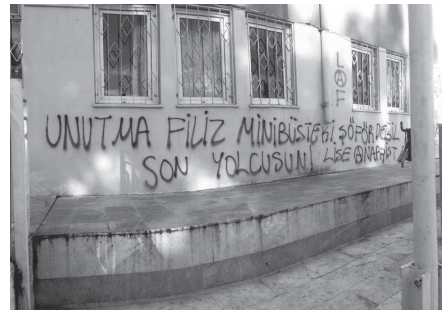 L
Ⓐ
F
UNUTMA FİLİZ MİNİBÜSTE Bİ. ŞÖFÖR DEĞİL
SON YOLCUSUN! LİSE ⒶNARŞİST